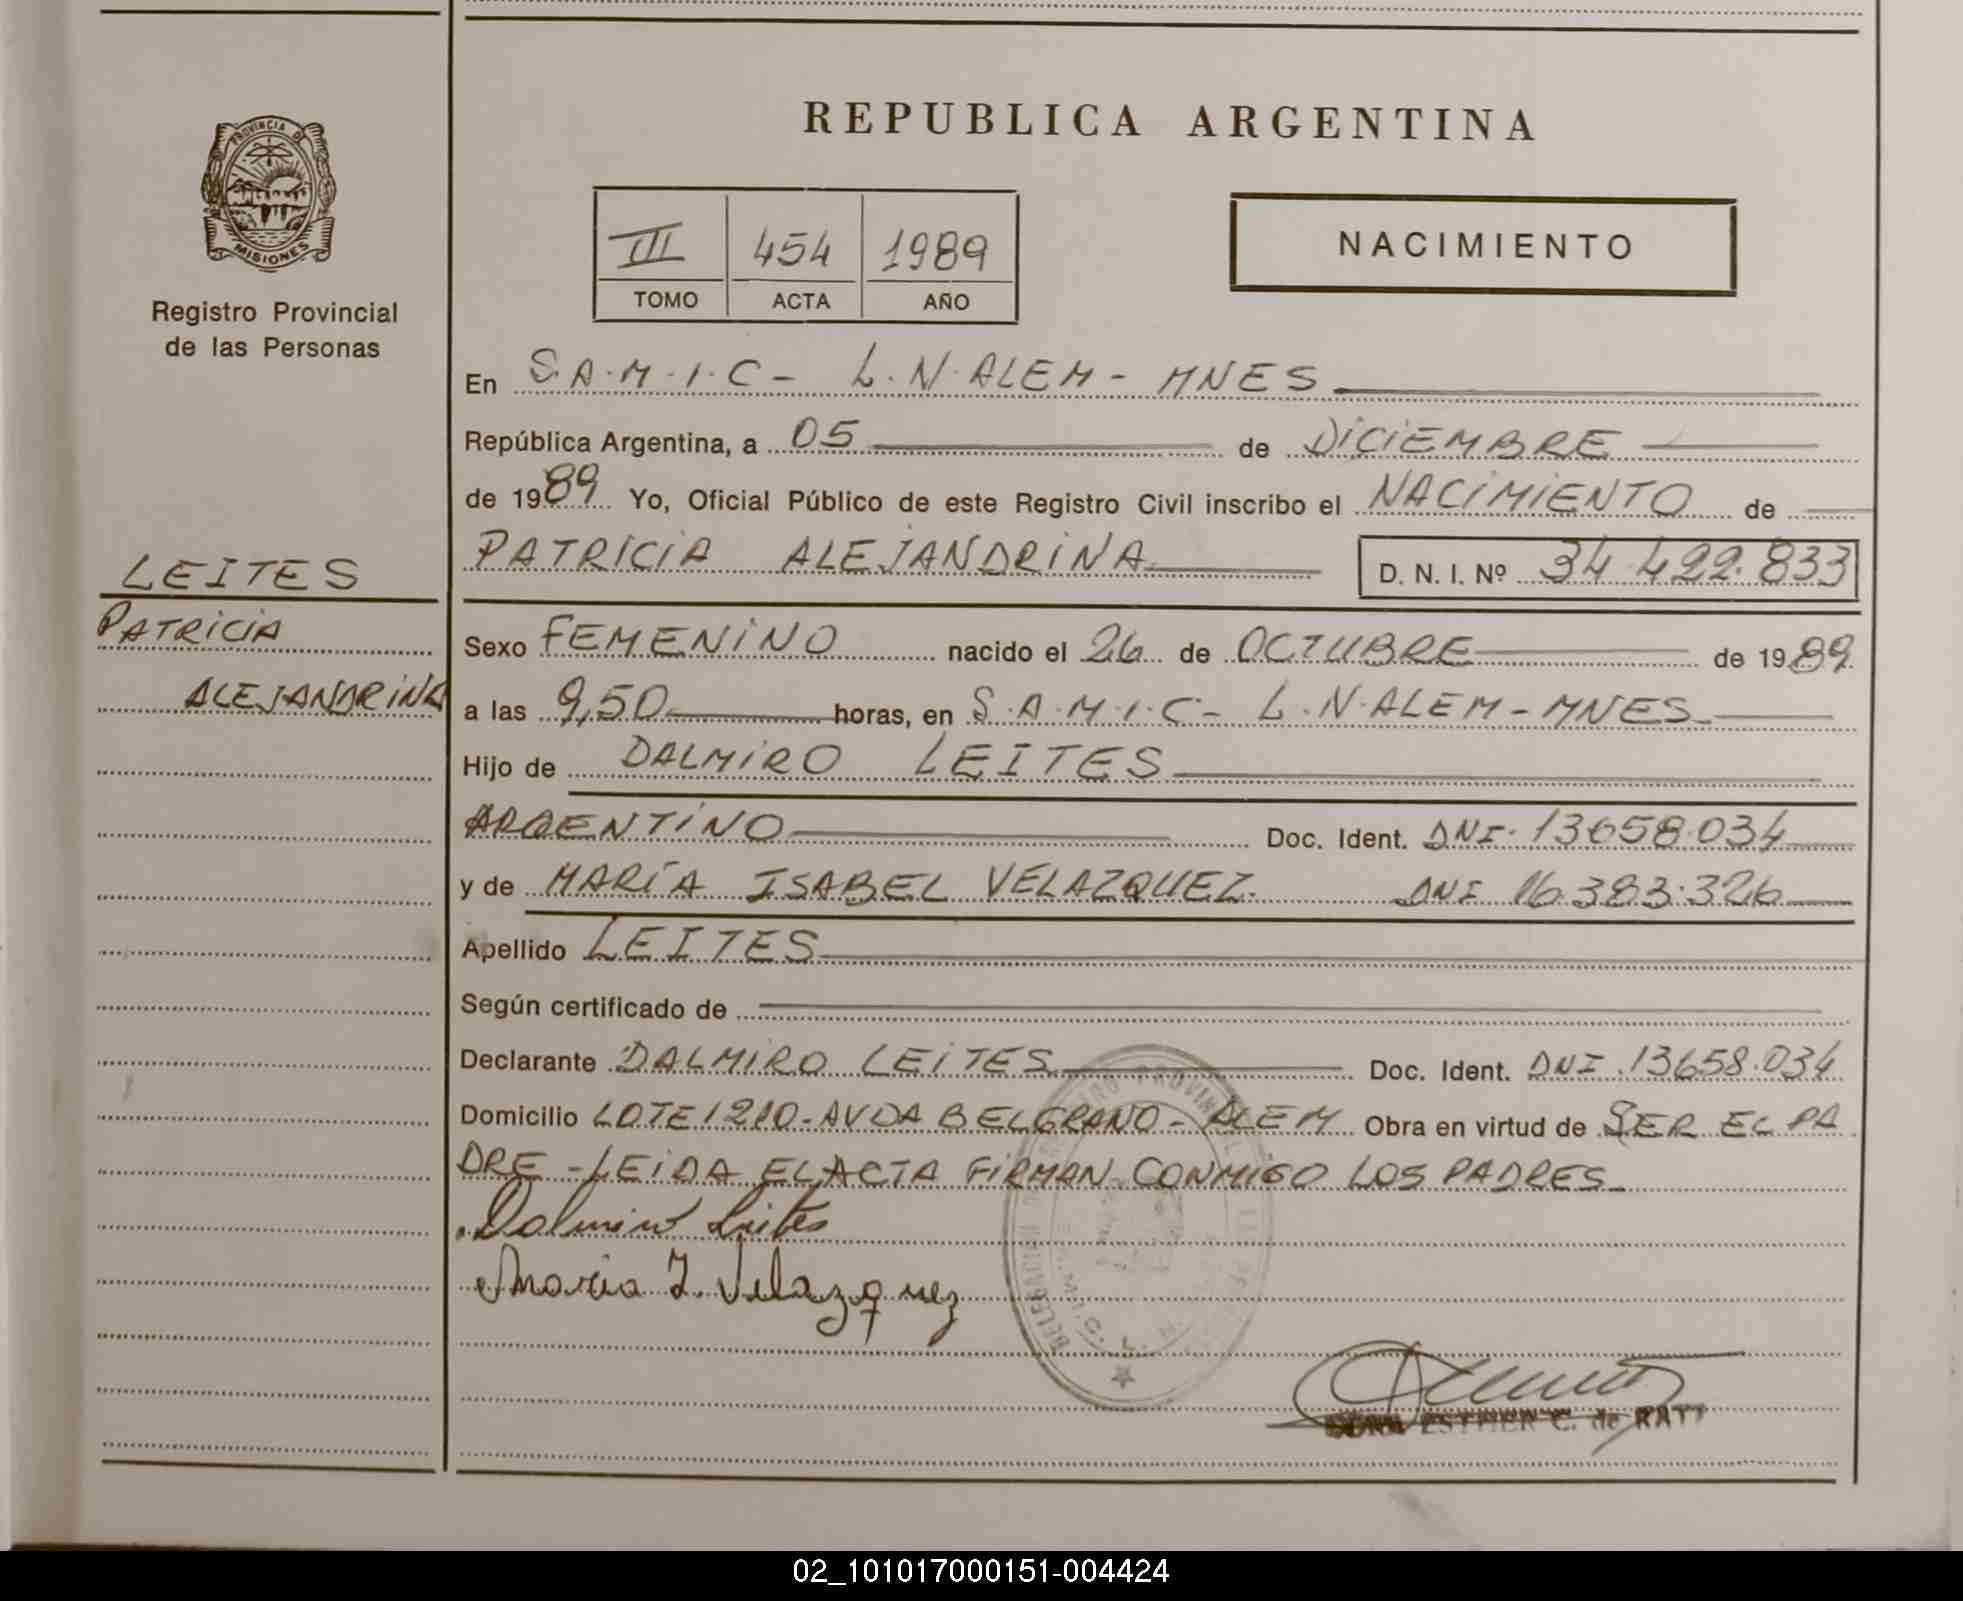 REPUBLICA ARGENTINA
PROVINCIA DE
MISIONES
Registro Provincial
de las Personas
III 454 1989
TOMO ACTA AÑO
NACIMIENTO
En S.A.M.I.C - L.N.ALEM - MNES
República Argentina, a 05 de DICIEMBRE
de 1989 Yo, Oficial Público de este Registro Civil inscribo el NACIMIENTO de
PATRICIA ALEJANDRINA D. N. I. Nº 34.422.833
LEITES
PATRICIA
ALEJANDRINA
Sexo FEMENINO nacido el 26 de OCTUBRE de 1989
a las 9,50 horas, en S.A.M.I.C - L.N.ALEM - MNES
Hijo de DALMIRO LEITES
ARGENTINO Doc. Ident. DNI. 13658.034
y de MARÍA ISABEL VELAZQUEZ. DNI 16.383.326
Apellido LEITES
Según certificado de
Declarante DALMIRO LEITES Doc. Ident. DNI.13658.034
Domicilio LOTE 1210 - AVDA BELGRANO - ALEM Obra en virtud de SER EL PA
DRE - LEIDA EL ACTA FIRMAN CONMIGO LOS PADRES
Dalmiro Leites
Maria I. Velazquez
ESTHER C. de RATI
02_101017000151-004424